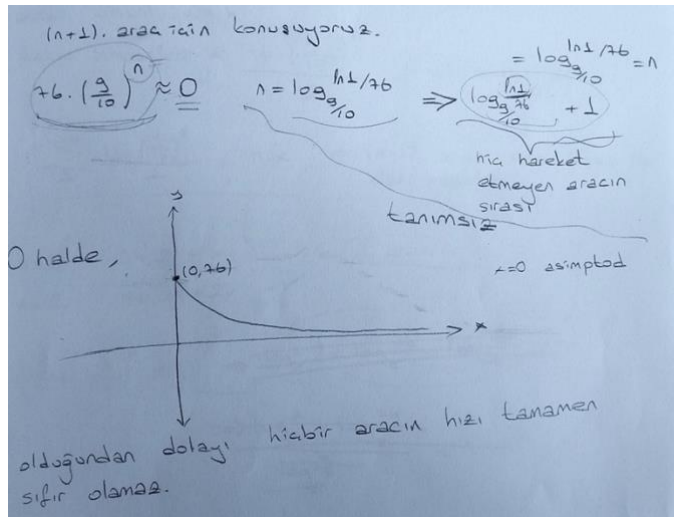 (n+1). araç için konuşuyoruz.
76 . (9/10)^n ≈ 0
n = log_{9/10} ln1/76
⇒ log_{9/10} ln1/76 + 1
= log_{9/10} ln1/76 = n
hiç hareket
etmeyen aracın
sırası
tanımsız
O halde,
y
(0,76)
x
x=0 asimptod
olduğundan dolayı hiçbir aracın hızı tamamen
sıfır olamaz.